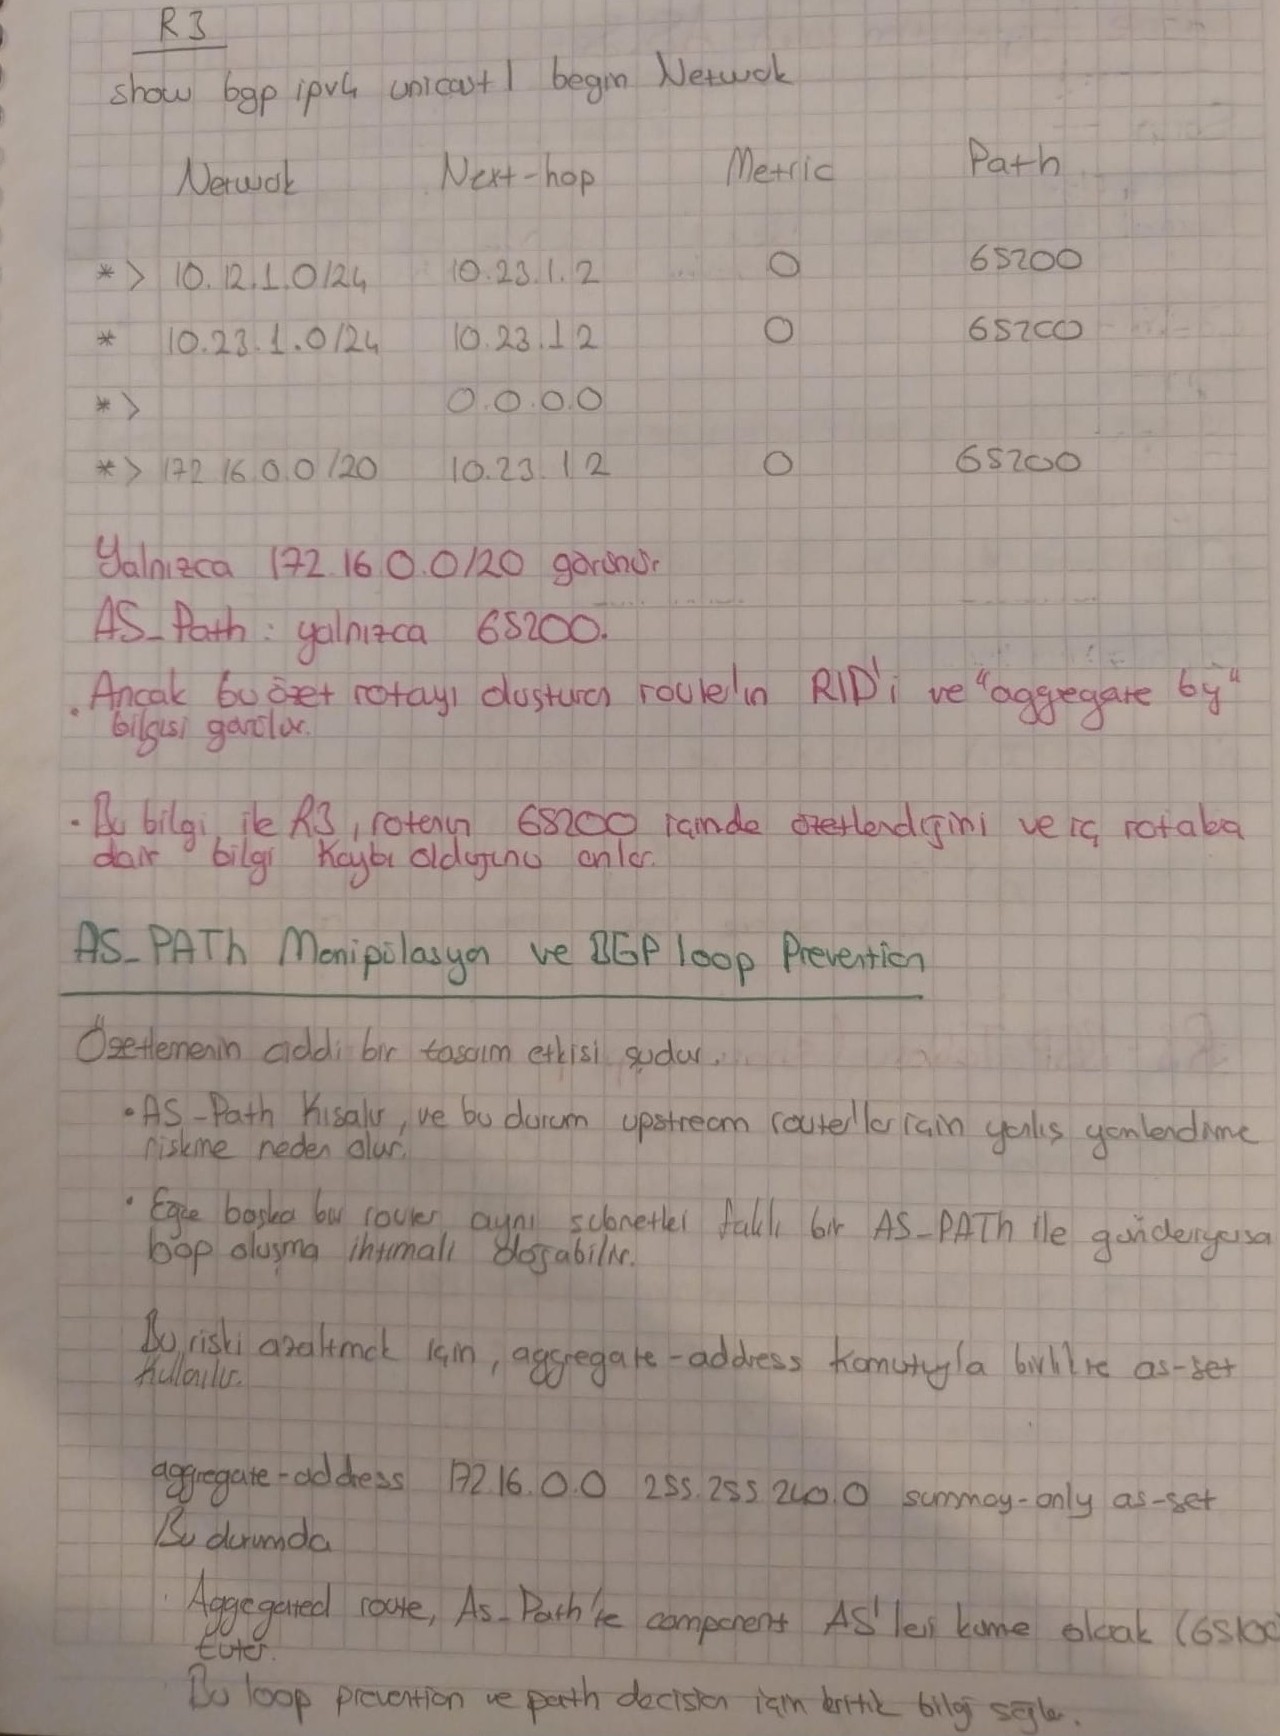 R3
show bgp ipv4 unicast | begin Netwok
Netwok Next-hop Metric Path
*> 10.12.1.0/24 10.23.1.2 0 65200
* 10.23.1.0/24 10.23.1 2 0 65200
*> 0.0.0.0
*> 172 16.0.0/20 10.23.1 2 0 65200
Yalnızca 172.16.0.0/20 görünür
AS_Path : yalnızca 65200.
. Ancak bu özet rotayı oluşturan router'ın RID'i ve "aggregate by"
bilgisi görülür.
. Bu bilgi ile R3, rotanın 65200 içinde özetlendiğini ve iç rotalara
dair bilgi kaybı olduğunu anlar.
AS_PATh Manipülasyon ve BGP loop Prevention
Özetlemenin ciddi bir tasarım etkisi şudur.
• AS-Path kısalır, ve bu durum upstream router'lar için yanlış yönlendirme
riskine neden olur.
• Eğer başka bir router aynı subnetleri farklı bir AS_PATh ile gönderiyorsa
loop oluşma ihtimali doğabilir.
Bu riski azaltmak için, aggregate-address komutuyla birlikte as-set
kullanılır.
aggregate-address 172.16.0.0 255.255.240.0 summay-only as-set
Bu durumda
. Aggegated route, As_Path'te component AS'leri küme olarak (65100
tutar.
Bu loop prevention ve path decision için kritik bilgi sağlar.